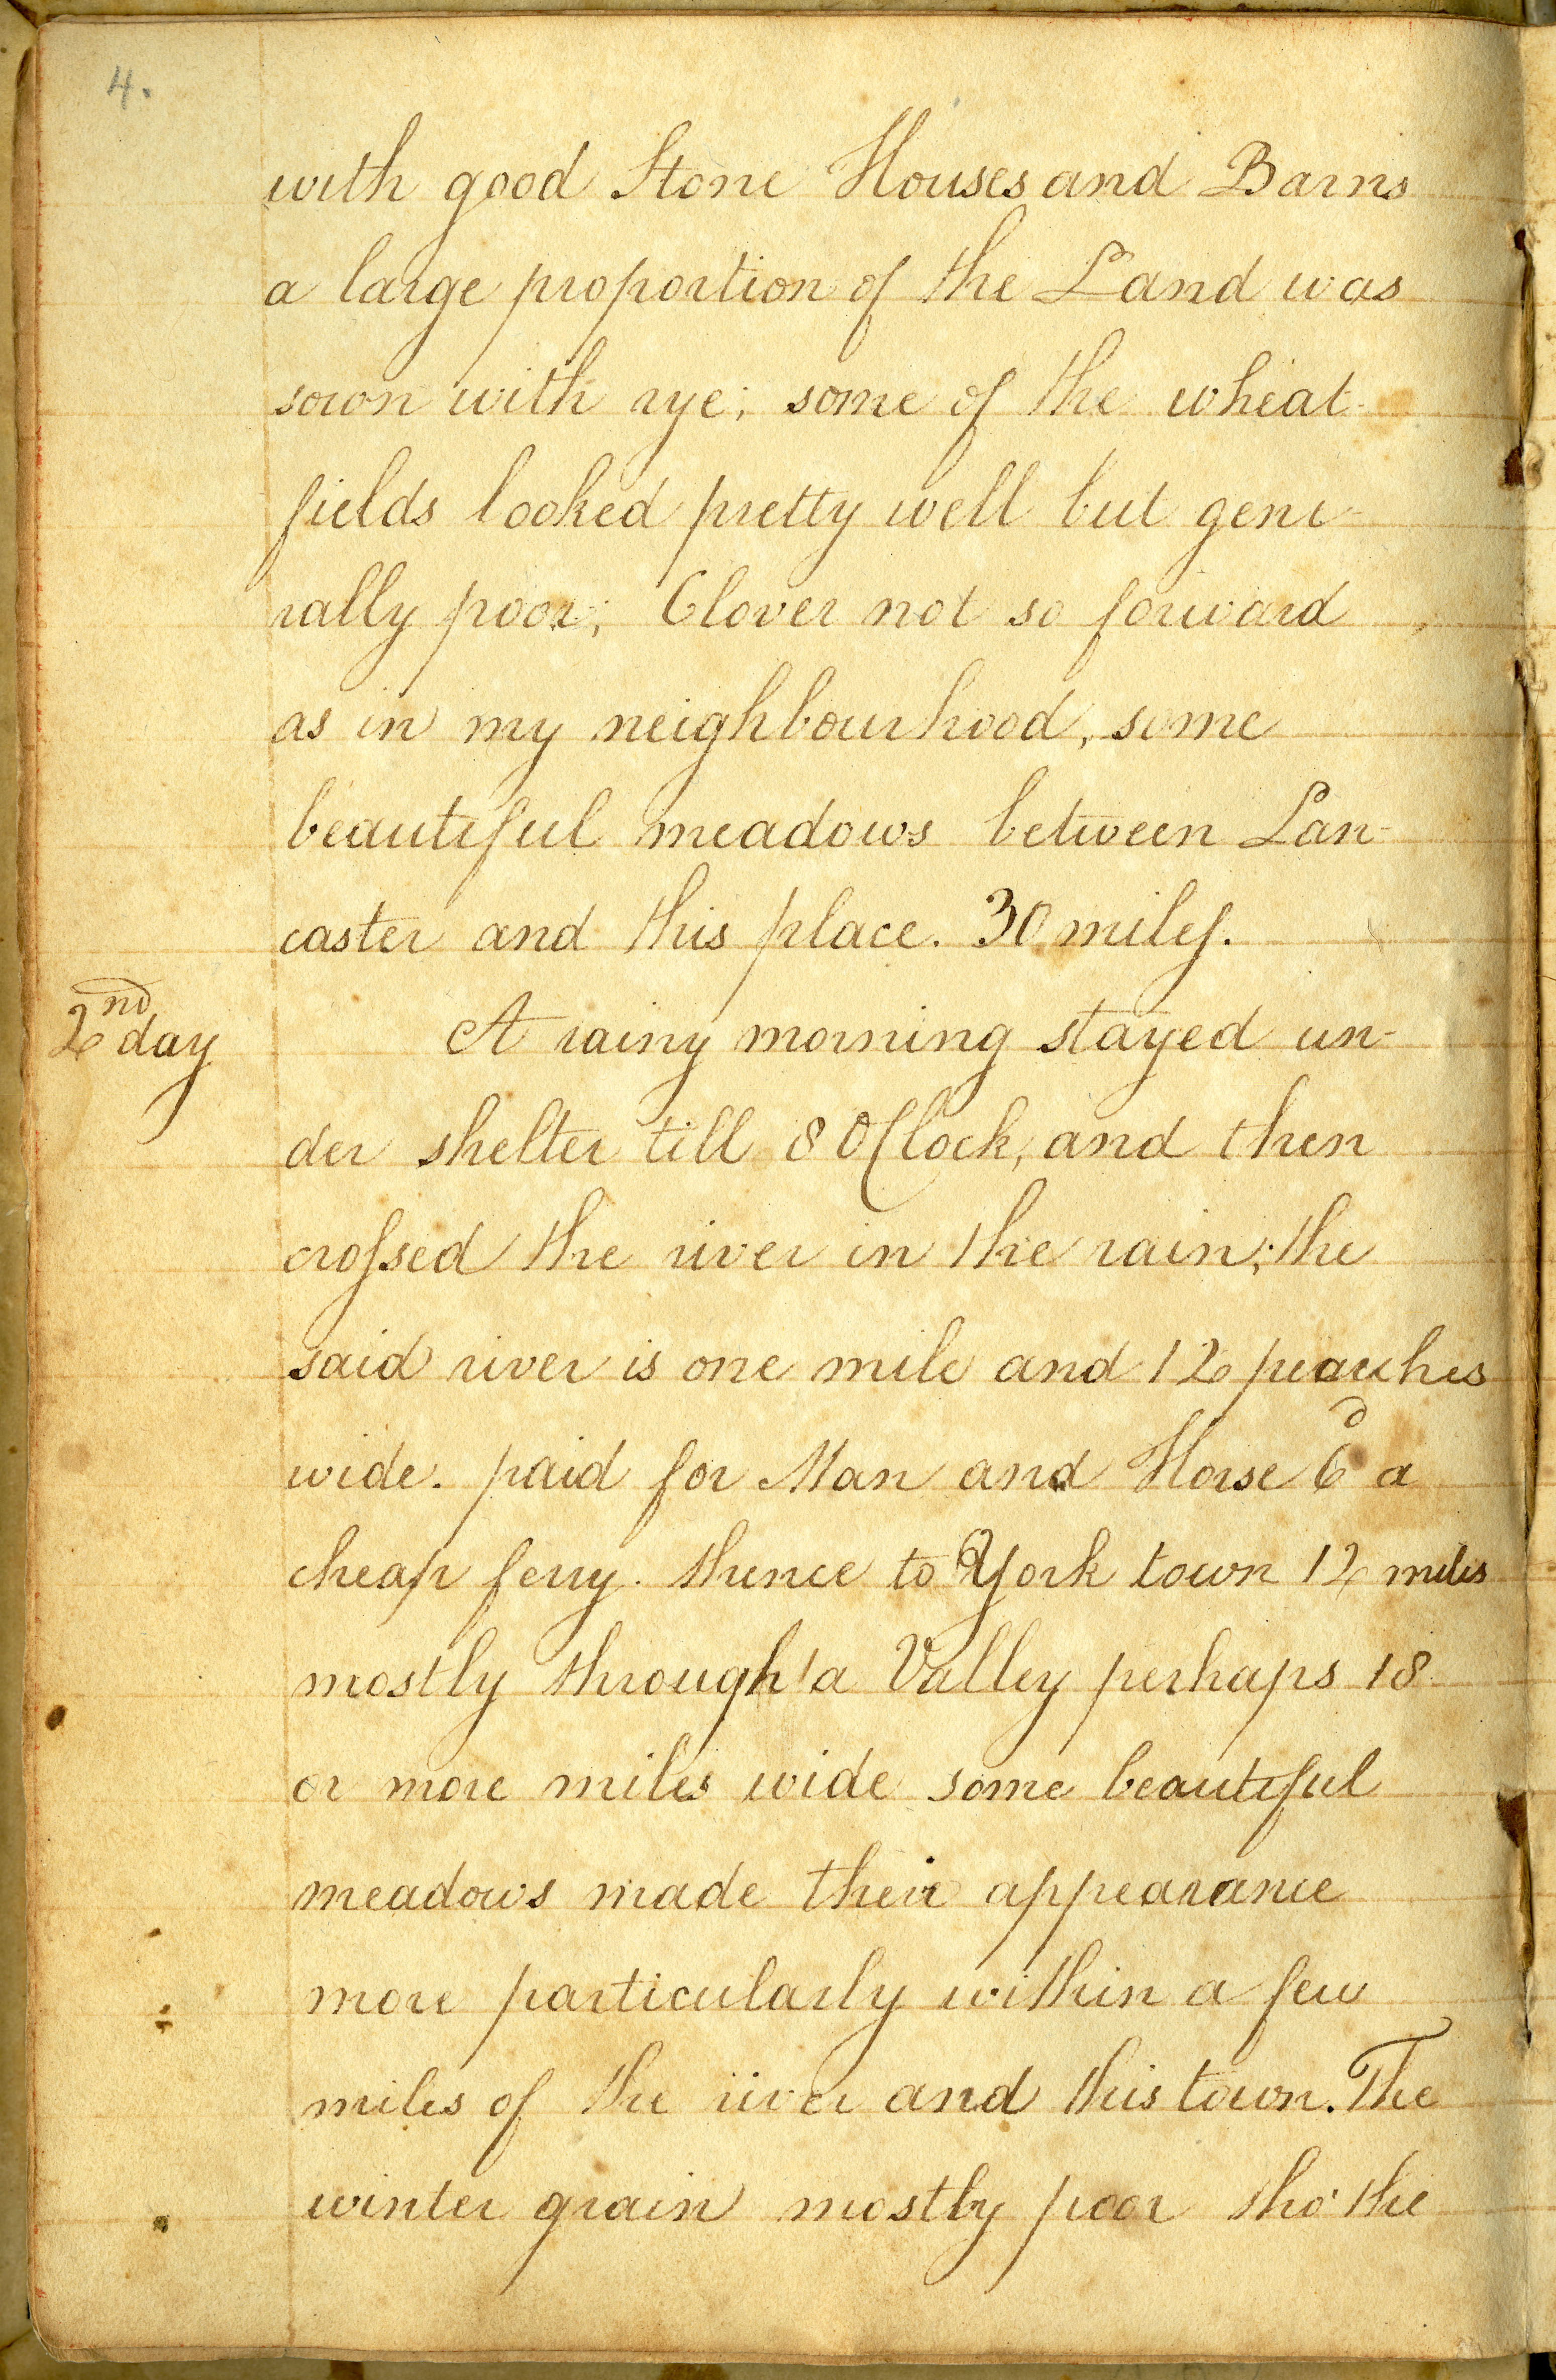 4.
with good Stone Houses and Barns
a large proportion of the Land was
sown with rye; some of the wheat
fields looked pretty well but gene-
rally poor; Clover not so forward
as in my neighbourhood, some
beautiful meadows between Lan-
caster and this place. 30 miles.
2nd day
A rainy morning stayed un-
der shelter till 8 OClock, and then
crossed the river in the rain; the
said river is one mile and 12 pearches
wide. paid for Man and Horse 6d a
cheap ferry. thence to York town 12 miles
mostly through a Valley perhaps 18
or more miles wide some beautiful
meadows made their appearance
more particularly within a few
miles of the river and this town. The
winter grain mostly poor tho' the